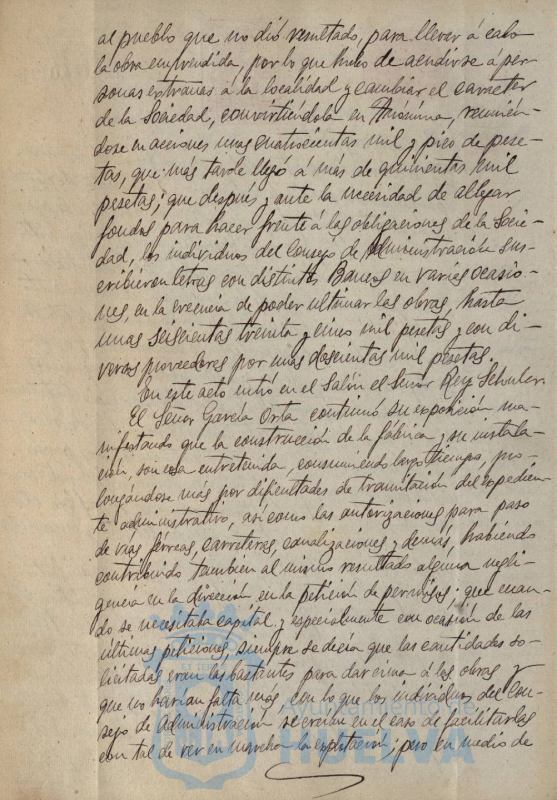 al pueblo que no dió resultado, para llevar á cabo
la obra emprendida, por lo que hubo de acudirse á per-
sonas extrañas á la localidad y cambiar el caracter
de la Sociedad, convirtiéndola en Anónima, reunién-
dose en acciones unas cuatrocientas mil y pico de pese-
tas, que más tarde llegó á más de quinientas mil
pesetas; que después y ante la necesidad de allegar
fondos para hacer frente á las obligaciones de la Socie-
dad, los individuos del Consejo de Administración sus-
cribieron letras con distintos Bancos en varias ocasio-
nes, en la creencia de poder ultimar las obras, hasta
unas seiscientas treinta y cinco mil pesetas y con di-
versos proveedores por unas doscientas mil pesetas.
En este acto entró en el Salón el Señor Rey
El Señor García Orta continuó su exposición ma-
nifestando que la construcción de la fábrica y su instala-
ción son cosa entretenida, consumiendo largo tiempo, pro-
longándose más por dificultades de tramitación del expedien-
te administrativo, así como las autorizaciones para paso
de vías férreas, carreteras, canalizaciones y demás, habiendo
contribuido tambien al mismo resultado alguna negli-
gencia en la dirección en la petición de permisos; que cuan-
do se necesitaba capital y especialmente con ocasión de las
últimas peticiones, siempre se decía que las cantidades so-
licitadas eran las bastantes para dar cima á las obras y
que no harían falta mas con lo que los individuos del Con-
sejo de Administración se creían en el caso de facilitarlas
con tal de ver en marcha la explotación; pero en medio de
Ayuntamiento de
HUELVA